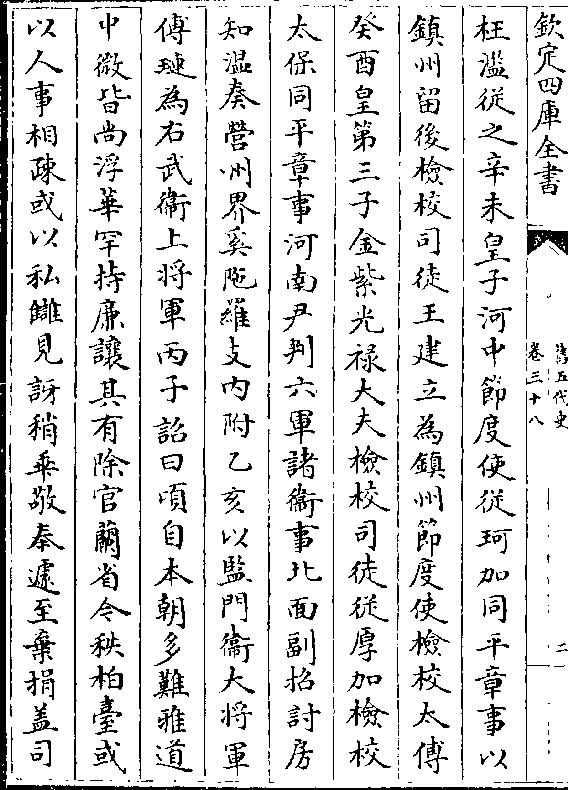 欽定四庫全書
舊五代史
卷三十八
二
枉濫從之辛未皇子河中節度使從珂加同平章事以
鎮州留後檢校司徒王建立為鎮州節度使檢校太傅
癸酉皇第三子金紫光祿大夫檢校司徒從厚加檢校
太保同平章事河南尹判六軍諸衞事北面副招討房
知溫奏營州界奚陁羅支內附乙亥以監門衞大將軍
傅𤩊為右武衞上將軍丙子詔曰頃自本朝多難雅道
中微皆尚浮華罕持廉讓其有除官蘭省命秩柏臺或
以人事相疎或以私讎見訝稍乖敬奉遽至棄捐盖司